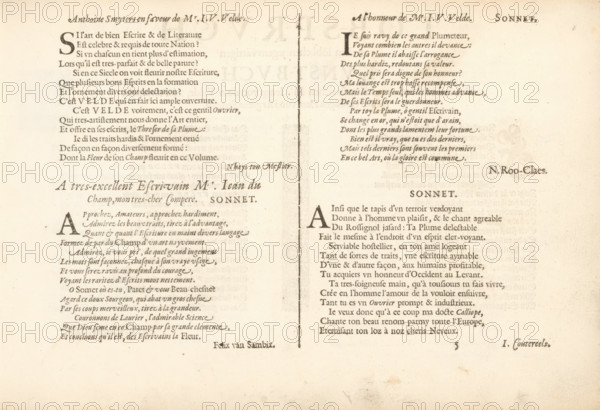 Anthoine Smyters en faveur de Mr. I. V. Velde.
SI l'art de bien Escrire & de Literature
Est celebre & requis de toute Nation?
Si vn chascun en tient plus d'estimation,
Lors qu'il est tres-parfait & de belle parure?
Si en ce Siecle on voit fleurir nostre Escriture,
Que plusieurs bons Esprits en la formation
Et l'ornement diversi sont delectation?
C'est VELDE qui en fait icy ample ouverture.
C'est VELDE voirement, c'est ce gentil Ouvrier,
Qui tres-artistement nous donne l'Art entier,
Et offre en ses escrits, le Thresor de sa Plume.
Ie di les traits hardis de l'ornement orné
De façon en façon diversement formé:
Dont la Fleur de son Champ fleurit en ce Volume.
N'hayt ton Mestier.
A tres-excellent Escrivain Mr. Iean du
Champ, mon tres-cher Compere. SONNET.
APprochez, Amateurs, approchez hardiment,
Admirez les beaux traits, tirez à l'advantage,
Quant & quant l'Escriture en maint divers langage
Formez de par du Champ d'vn art nayvement.
Admirez, ie vous prie, de quel grand
Les mots sont façonnez, chascun à son vray vsage,
Et vous serez ravis au profond du courage,
Voyant les raritez d'Escrits mout nettement.
O Somer où es tu, Paret & vous Beau-chesne?
Agard ce doux Sourgeon, qui abat vn gros chesne
Par ses coups merveilleux, tirez à la grandeur.
Couronnons de Laurier, l'admirable Science,
Que Dieu seme en ce Champ par sa grande clemence,
Et concluons qu'il est, des Escrivains la Fleur.
Felix van Sambix.
A l'honneur de Mr. I. V. Velde. SONNET.
IE suis ravy de ce grand Plumeteur,
Voyant combien les autres il devance:
De sa Plume il abaisse l'arrogance
Des plus hardiz, redoutans sa valeur.
Quel pris sera digne de son honneur?
Ma louange est trop basse recompense,
Mais le Temps seul, qui les hommes advance,
De ses Escrits sera le guerdonneur.
Par toy la Plume, ô gentil Escrivain,
Se change en or, qui n'estoit que d'airain,
Dont les plus grands lamentent leur fortune.
Bien est il vray, que tu es des derniers,
Mais tels derniers sont souvent les premiers
En ce bel Art, où la gloire est commune.
N. Roo-Claes.
SONNET.
AInsi que le tapis d'vn terroir verdoyant
Donne à l'homme vn plaisir, & le chant agreable
Du Rossignol jasard: Ta Plume delectable
Fait le mesme à l'endroit d'vn esprit cler-voyant.
Serviable hostellier, en ton ame logeant
Tant de sortes de traits, vne escriture aynable
D'vne & d'autre façon, aux humains profitable,
Tu acquiers vn honneur d'Occident au Levant.
Ta tres-soigneuse main, qu'à tousiours tu fais vivre,
Crée en l'homme l'amour de la vouloir ensuivre,
Tant tu es vn Ouvrier prompt & industrieux.
Ie veux donc qu'à ce coup ma docte Calliope,
Chante ton beau renom parmy toute l'Europe,
Eternisant ton loz à noz chers Neveux.
5 I. Coutereels.